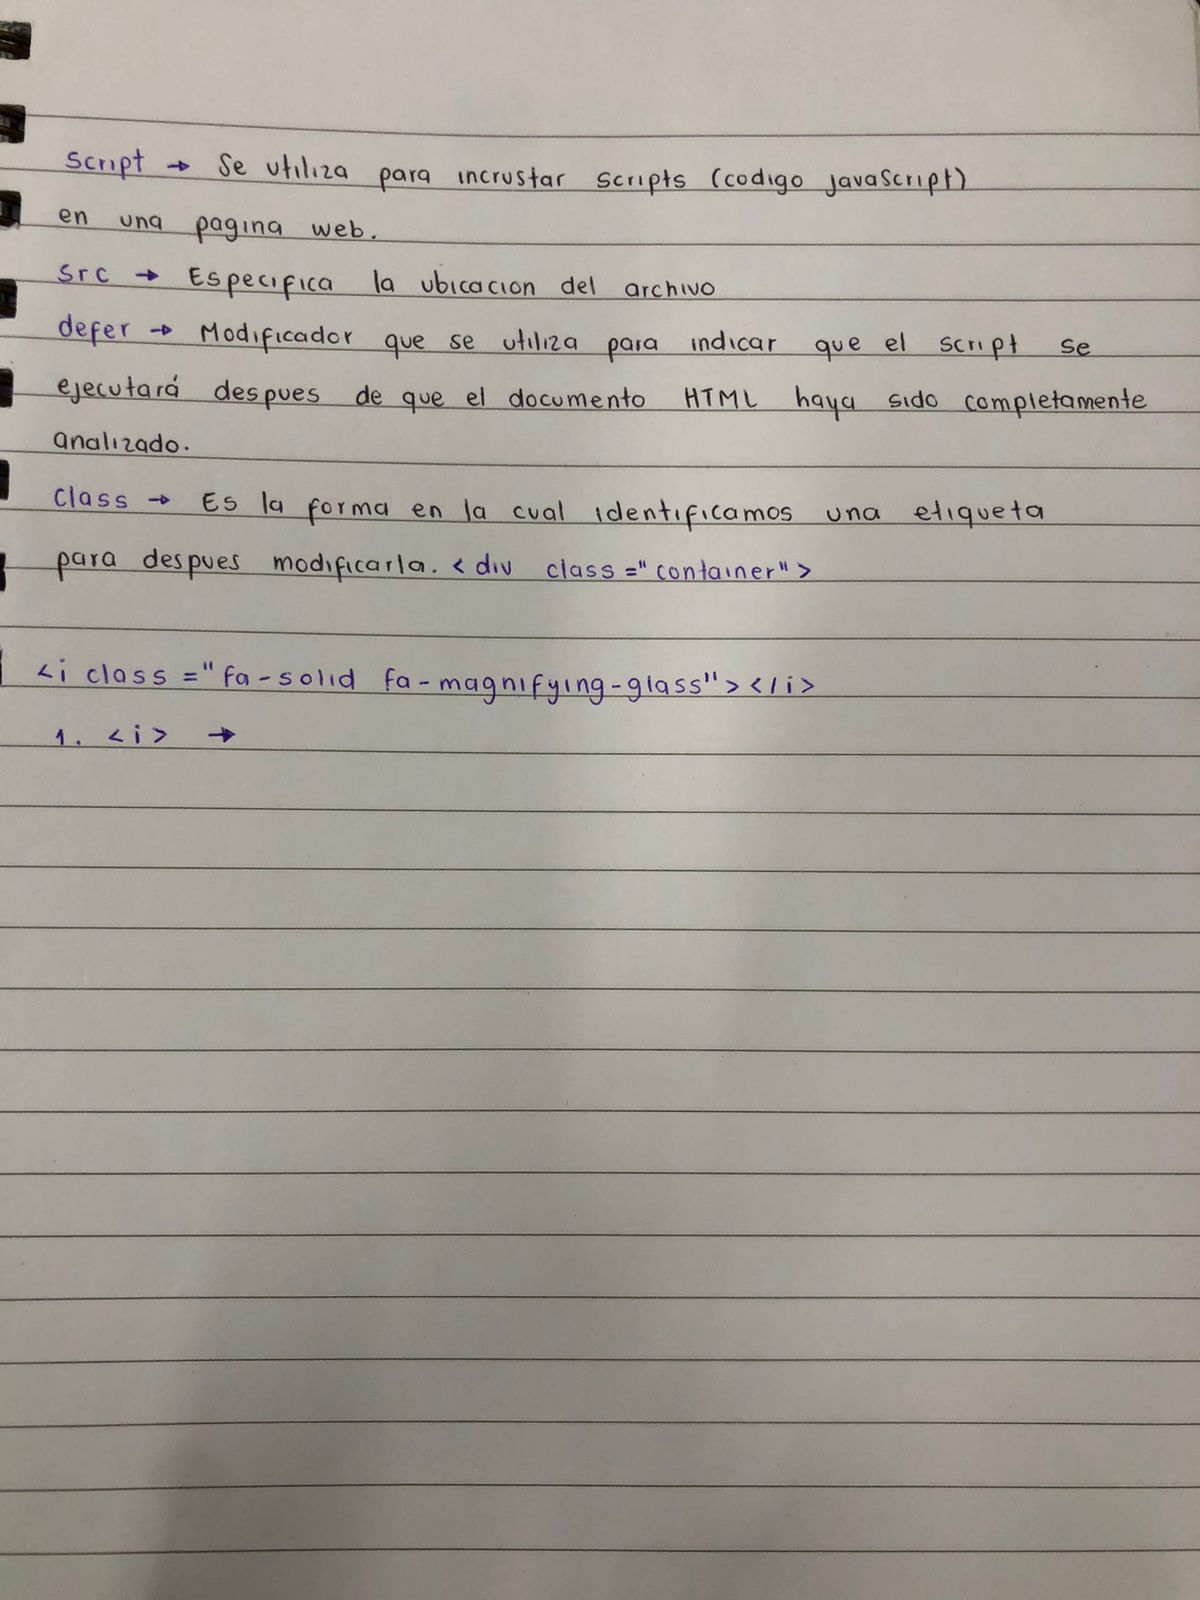 script → Se utiliza para incrustar scripts (codigo javaScript)
en una pagina web.
src → Especifica la ubicacion del archivo
defer → Modificador que se utiliza para indicar que el script se
ejecutará despues de que el documento HTML haya sido completamente
analizado.
class → Es la forma en la cual identificamos una etiqueta
para despues modificarla. <div class="container">
<i class="fa-solid fa-magnifying-glass"></i>
1. <i> →